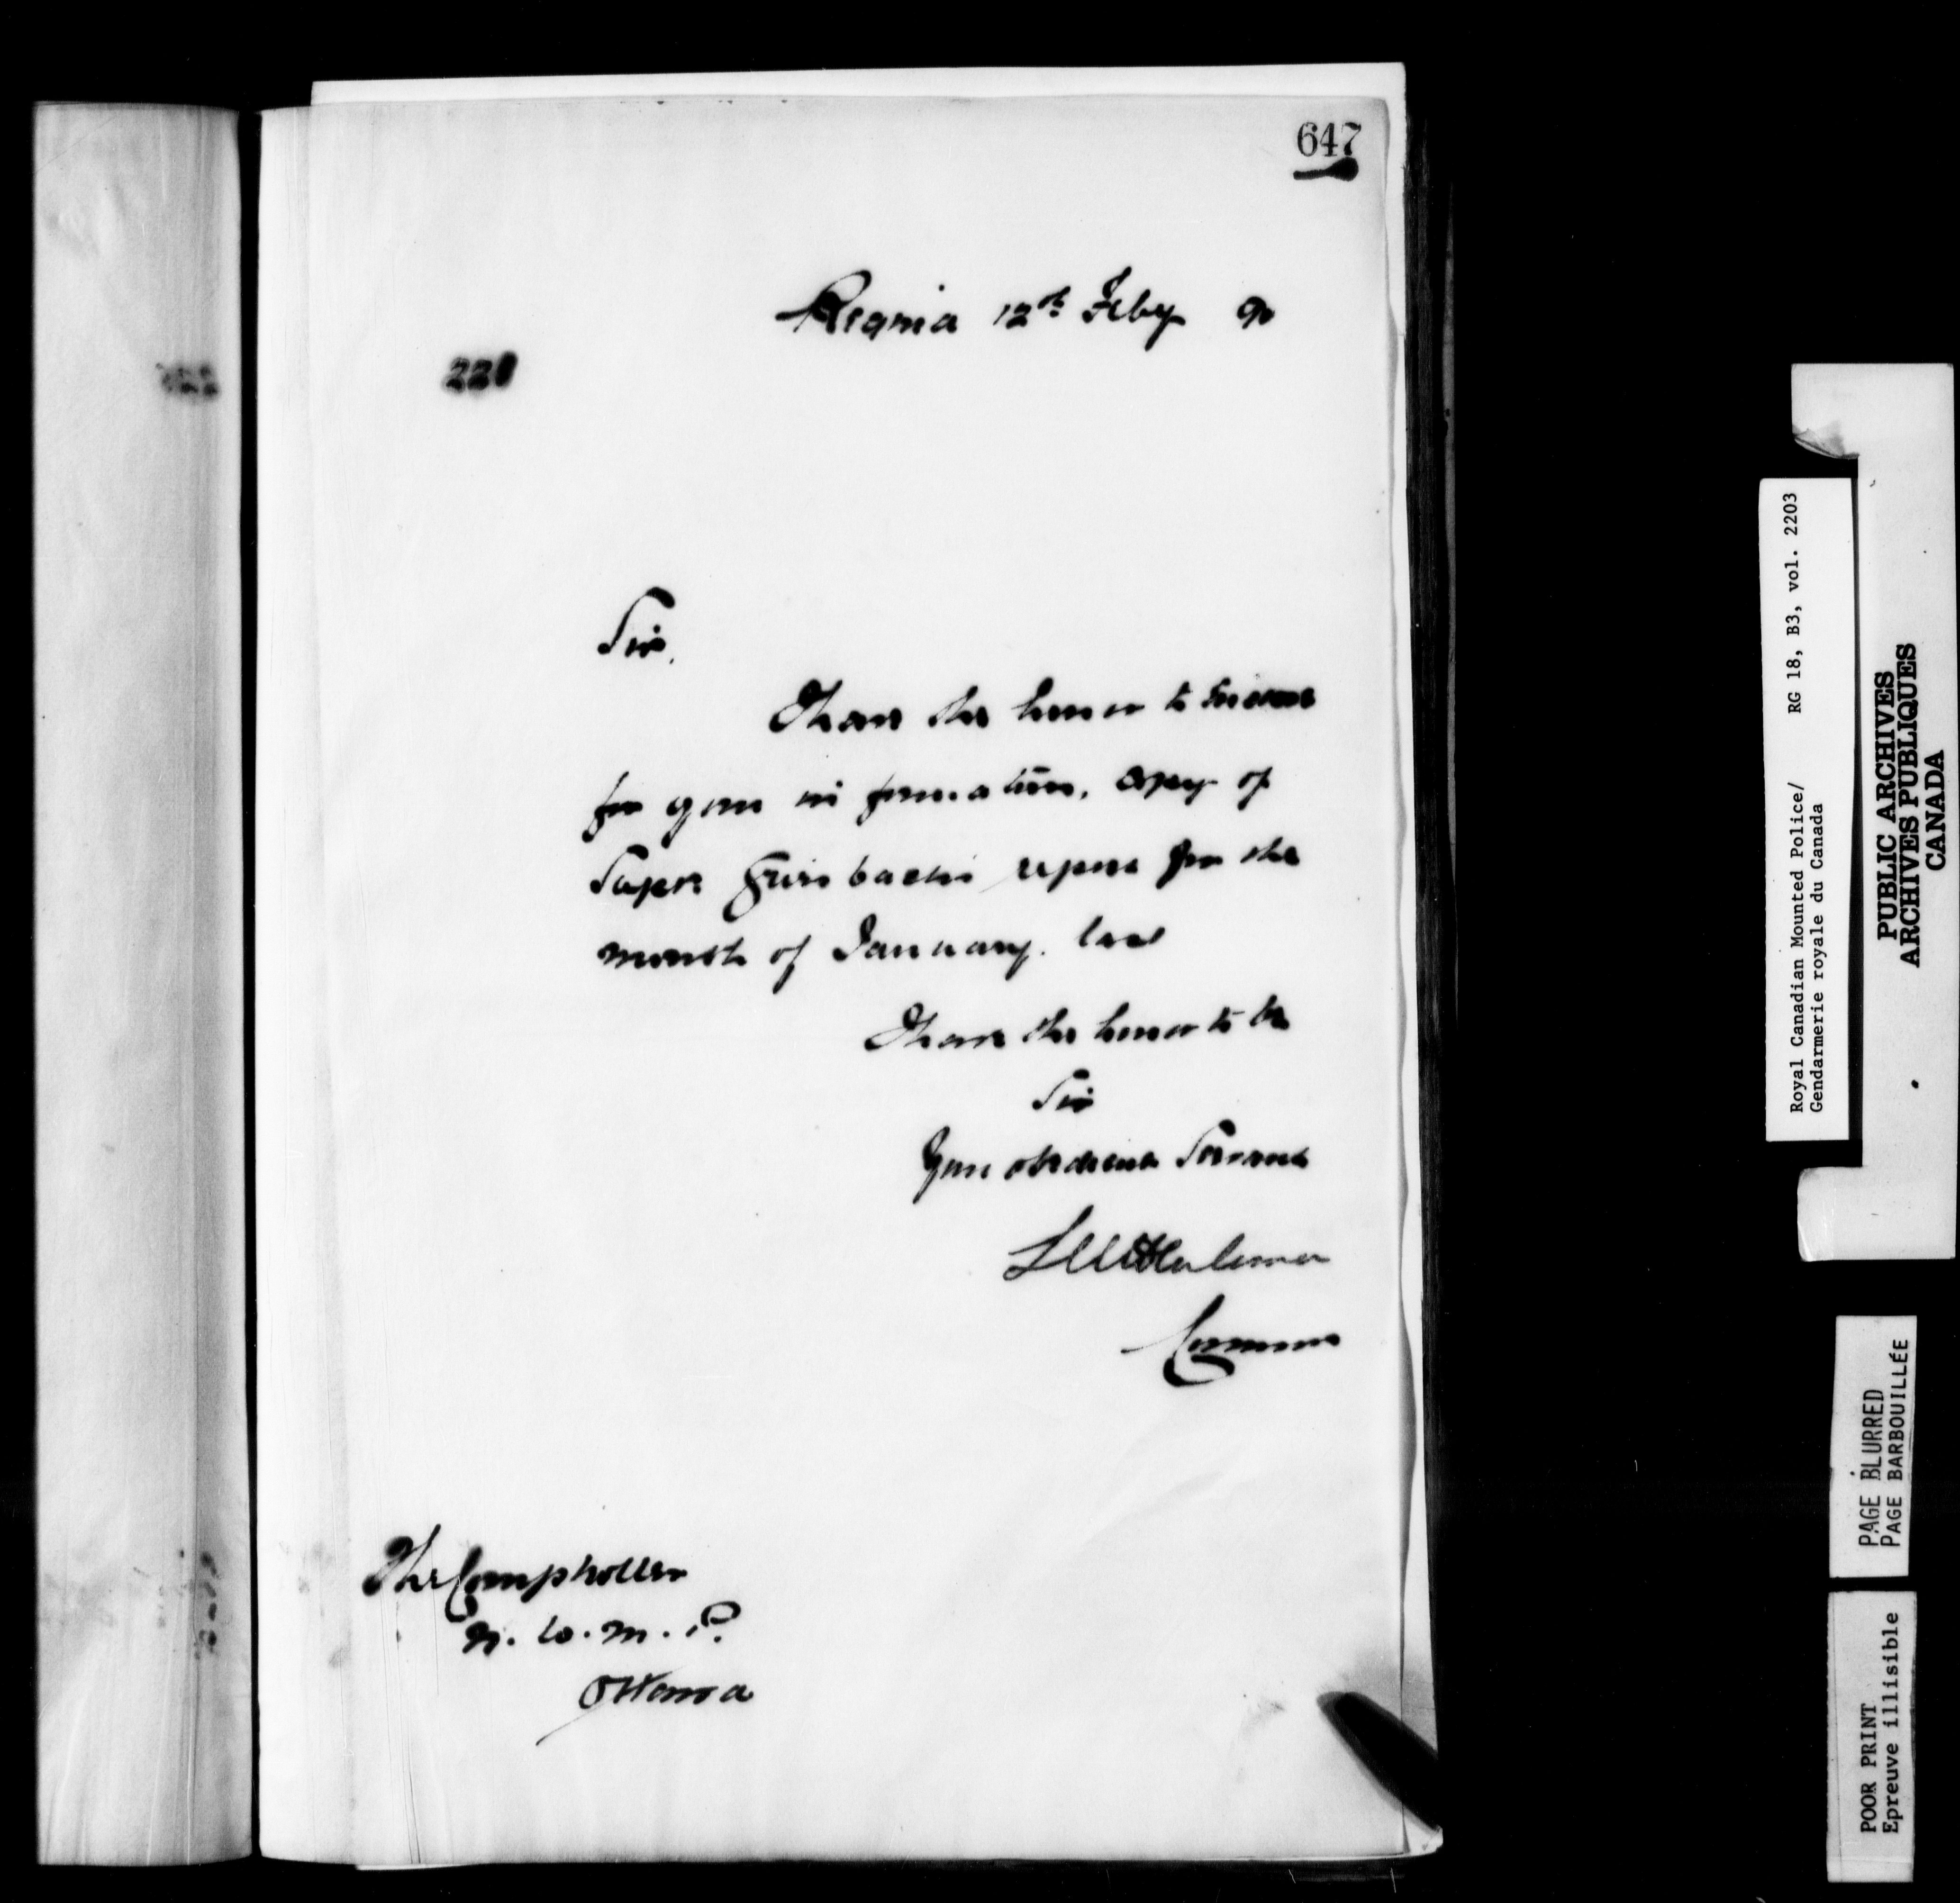 647
Regina 12th Feby 90
220
Sir,
I have the honor to enclose
for your information, copy of
Supt. report for the
month of January. last
I have the honor to be
Sir
Your obedient Servant
Commr
The Comptroller
N. W. M. P.
Ottawa
Royal Canadian Mounted Police/ RG 18, B3, vol. 2203
Gendarmerie royale du Canada
PUBLIC ARCHIVES
ARCHIVES PUBLIQUES
CANADA
PAGE BLURRED
PAGE BARBOUILLÉE
POOR PRINT
Epreuve illisible